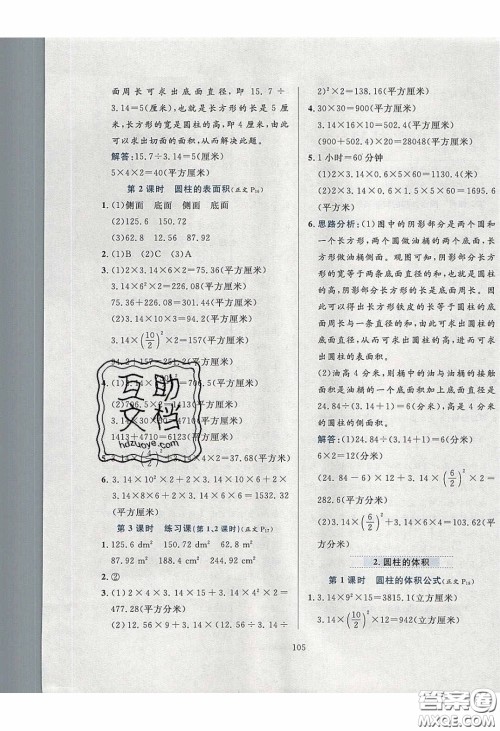 面周长可求出底面直径，即 15.7÷
3.14=5(厘米)，也就是长方形的长是 5 厘
米，长方形的宽是圆柱的高，即 4 厘米，由此
可以求出切面的面积，从而解决此题。
解答：15.7÷3.14=5(厘米)
5×4×2=40(平方厘米)
第 2 课时　圆柱的表面积(正文 P₁₆)
1. (1)侧面　底面　侧面　底面
(2)125.6　150.72
(3)62.8　12.56　87.92
2. (1)B　(2)C　(3)A
3. (1)3.14×2×3×4=75.36(平方厘米)
3.14×6²×2=226.08(平方厘米)
75.36+226.08=301.44(平方厘米)
(2)3.14×10×3=94.2(平方厘米)
3.14×(10/2)²×2=157(平方厘米)
94.2+157=251.2(平方厘米)
(2)706.5×2=1413(平方厘米)
1413+4710=6123(平方厘米)
×2=37.68(平方米)
6. 3.14×10²×2+3.14×10×6×2+
3.14×6×10×6=1532.32
(平方厘米)
第 3 课时　练习课(第 1、2 课时)(正文 P₁₇)
1. 125.6 dm²　150.72 dm²　62.8 m²
87.92 m²　188.4 dm²　244.92 dm²
2. ②
3. (1)3.14×2×4×15+3.14×4²×2=
477.28(平方分米)
(2)12.56×9+3.14×(12.56÷3.14÷
2)²×2=138.16(平方厘米)
4. 30×30=900(平方厘米)
3.14×16×10=502.4(平方厘米)
(900+502.4)×20=28048(平方厘米)
5. 1 小时=60 分钟
(1)2×3.14×1.5×3×60=1695.6
(平方米)
6. 思路分析：(1)图中的阴影部分是两个圆和
一个长方形，两个圆做油桶的两个底面，长
方形做油桶侧面。观图可知，阴影部分长方
形的宽等于两条底面直径的和，也就是圆柱
的高，阴影部分长方形的长是底面周长。因
此可以得出长方形铁皮的长等于圆柱的底
面周长与一条直径的和，由此可求出圆柱的
底面直径，从而可求出圆柱的高，进而可求
出圆柱的表面积。
(2)油高 4 分米，则桶中的油与桶的接触
面积是油桶的一个底面面积加上底面周长
是 24.84÷(3.14+1)=6(分米)，高是 4 分米
的圆柱的侧面积。
解答：(1)24.84÷(3.14+1)=6(分米)
6×2=12(分米)
(24.84-6)×12+3.14×(6/2)²×2=
282.6(平方分米)
(2)3.14×(6/2)²+3.14×6×4=103.62(平
方分米)
2.圆柱的体积
第 1 课时　圆柱的体积公式(正文 P₁₈)
1. 3.14×9²×15=3815.1(立方厘米)
3.14×(10/2)²×12=942(立方厘米)
105
互助
文档
hdzuoye.com
答案圈
MXQE.COM